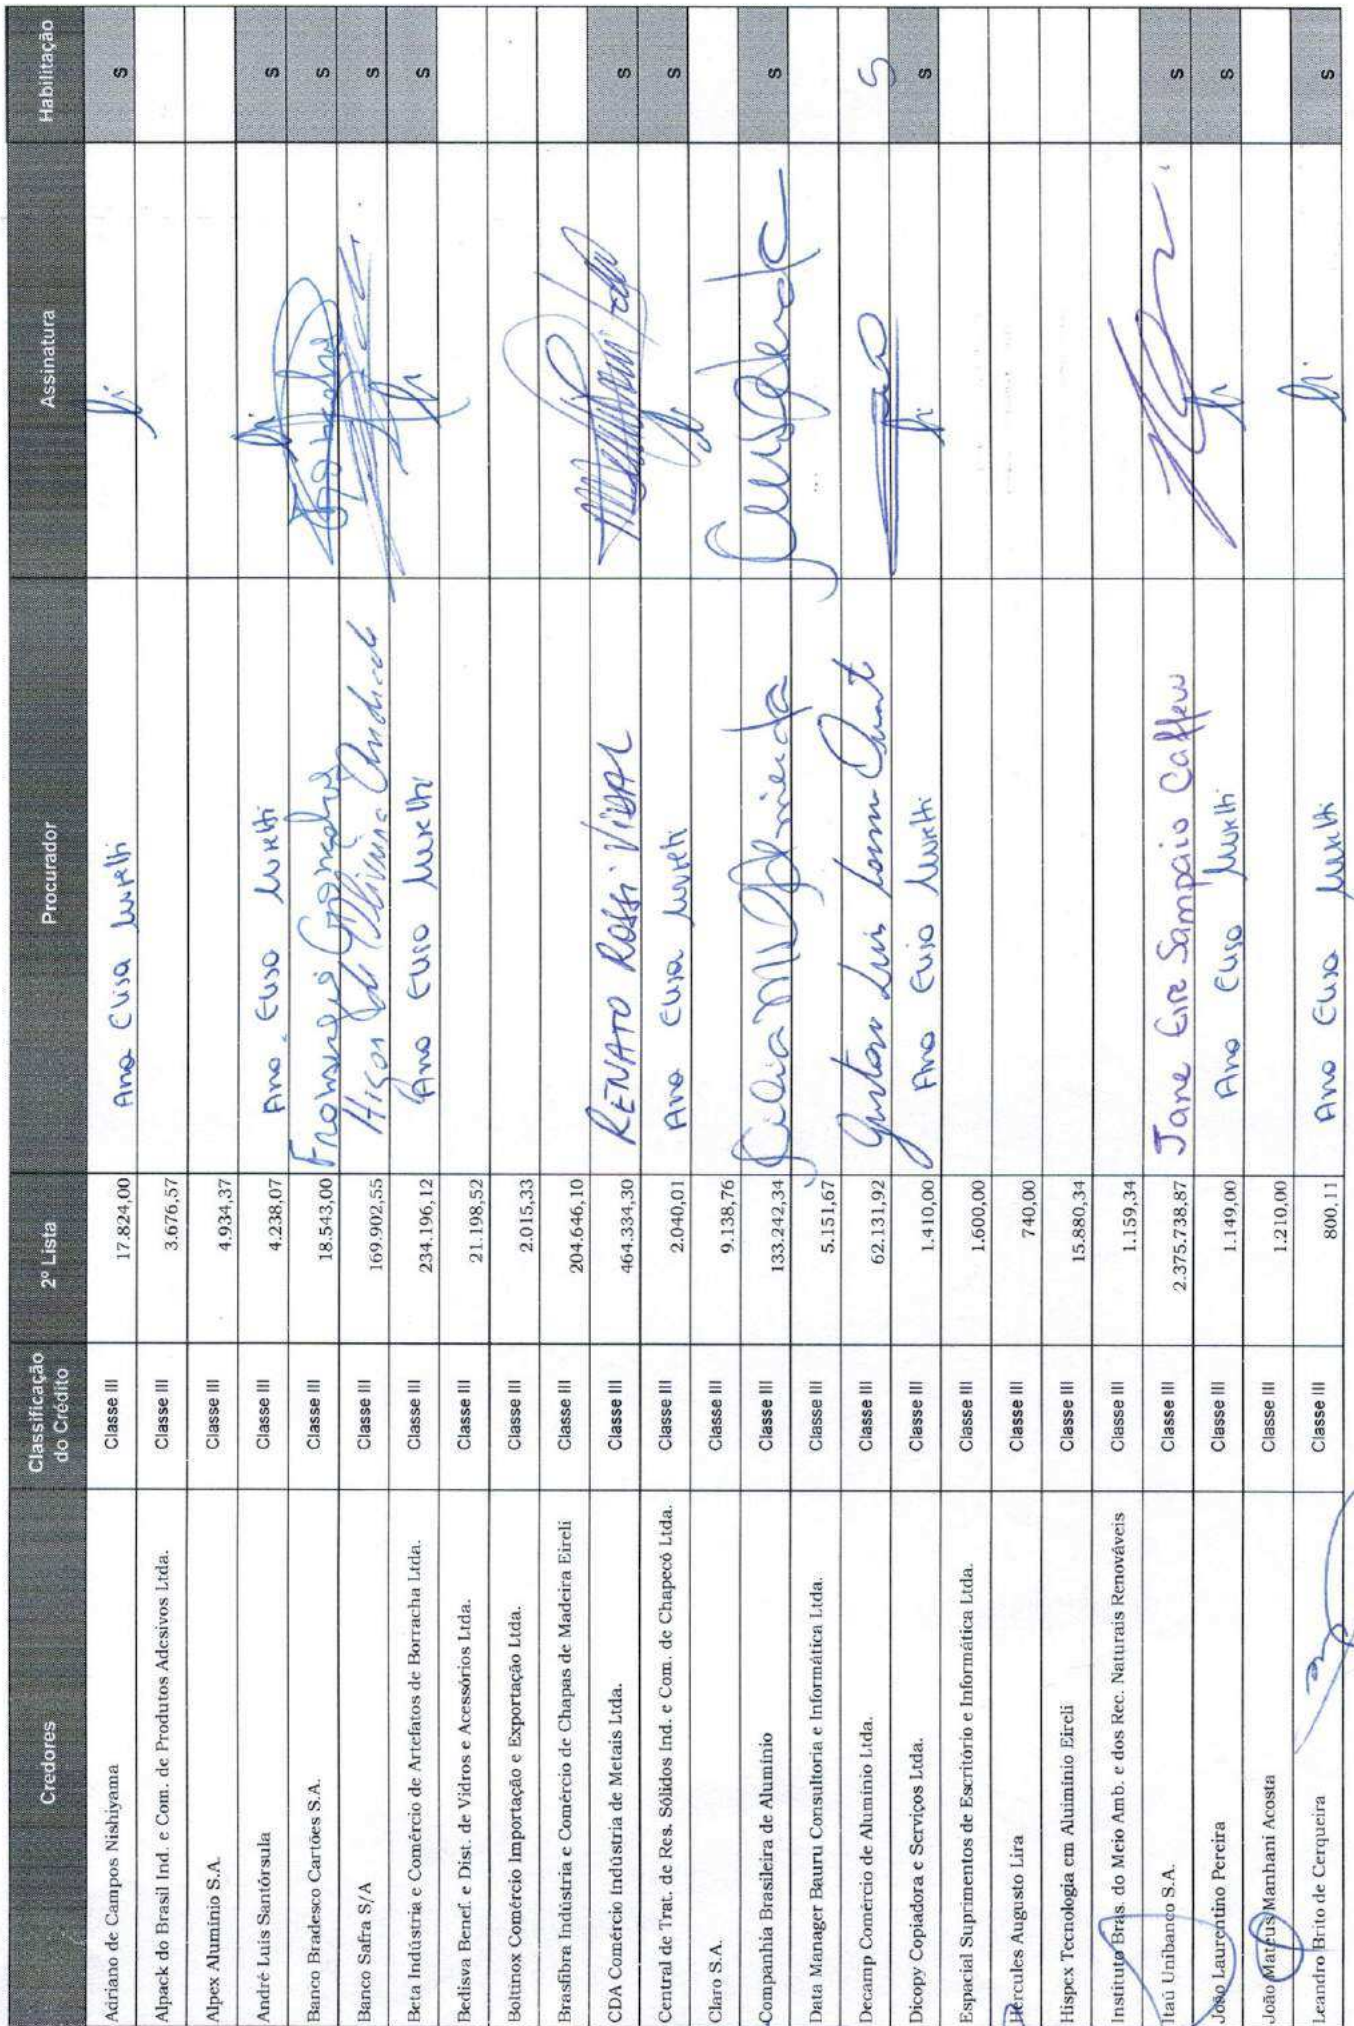 Credores Classificação do Crédito 2º Lista Procurador Assinatura Habilitação
Adriano de Campos Nishiyama Classe III 17.824,00 Ana Elisa S
Alpack do Brasil Ind. e Com. de Produtos Adesivos Ltda. Classe III 3.676,57
Alpex Alumínio S.A. Classe III 4.934,37
André Luis Santórsula Classe III 4.238,07 Ana Elisa S
Banco Bradesco Cartões S.A. Classe III 18.543,00 S
Banco Safra S/A Classe III 169.902,55 S
Beta Indústria e Comércio de Artefatos de Borracha Ltda. Classe III 234.196,12 Ana Elisa S
Bedisva Benef. e Dist. de Vidros e Acessórios Ltda. Classe III 21.198,52
Boltinox Comércio Importação e Exportação Ltda. Classe III 2.015,33
Brasfibra Indústria e Comércio de Chapas de Madeira Eireli Classe III 204.646,10
CDA Comércio Indústria de Metais Ltda. Classe III 464.334,30 RENATO ROSSI VIDAL S
Central de Trat. de Res. Sólidos Ind. e Com. de Chapecó Ltda. Classe III 2.040,01 Ana Elisa S
Claro S.A. Classe III 9.138,76
Companhia Brasileira de Alumínio Classe III 133.242,34 S
Data Manager Bauru Consultoria e Informática Ltda. Classe III 5.151,67
Decamp Comércio de Alumínio Ltda. Classe III 62.131,92 Gustavo Luis S
Dicopy Copiadora e Serviços Ltda. Classe III 1.410,00 Ana Elisa S
Espacial Suprimentos de Escritório e Informática Ltda. Classe III 1.600,00
Hercules Augusto Lira Classe III 740,00
Hispex Tecnologia em Aluimínio Eireli Classe III 15.880,34
Instituto Bras. do Meio Amb. e dos Rec. Naturais Renováveis Classe III 1.159,34
Itaú Unibanco S.A. Classe III 2.375.738,87 Jane Eire Sampaio S
João Laurentino Pereira Classe III 1.149,00 Ana Elisa S
João Mateus Manhani Acosta Classe III 1.210,00
Leandro Brito de Cerqueira Classe III 800,11 Ana Elisa S